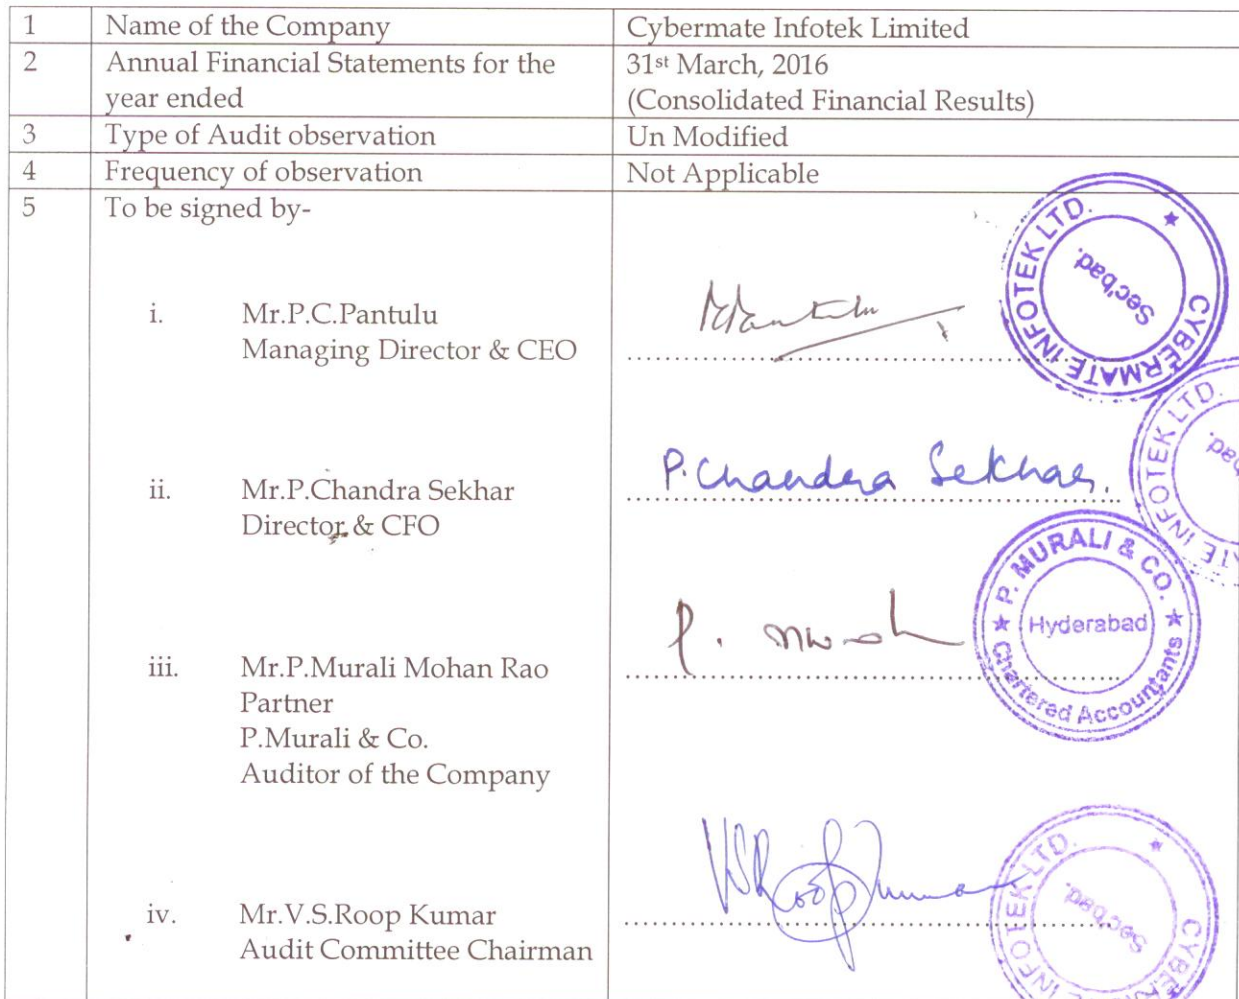 1 Name of the Company Cybermate Infotek Limited
2 Annual Financial Statements for the year ended 31st March, 2016
(Consolidated Financial Results)
3 Type of Audit observation Un Modified
4 Frequency of observation Not Applicable
5 To be signed by-
i. Mr.P.C.Pantulu
Managing Director & CEO
CYBERMATE INFOTEK LTD. ★
Sec'bad.
ii. Mr.P.Chandra Sekhar
Director & CFO
P. Chandra Sekhar.
ATE INFOTEK LTD.
iii. Mr.P.Murali Mohan Rao
Partner
P.Murali & Co.
Auditor of the Company
★ P. MURALI & CO. ★
Hyderabad
Chartered Accountants
iv. Mr.V.S.Roop Kumar
Audit Committee Chairman
VSRoopKumar
INFOTEK LTD. ★ CYBER
Sec'bad.